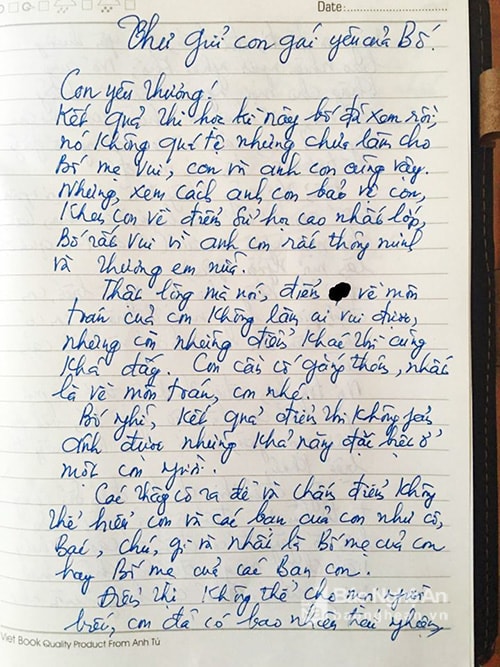 Date:
Thư gửi con gái yêu của Bố.
Con yêu thương!
Kết quả thi học kì này bố đã xem rồi,
nó không quá tệ nhưng chưa làm cho
Bố mẹ vui, con và anh con cũng vậy.
Nhưng, xem cách anh con bảo vệ con,
khen con về điểm sử học cao nhất lớp,
Bố rất vui vì anh con rất thông minh
và thương em nữa.
Thật lòng mà nói, điểm về môn
toán của con không làm ai vui được,
nhưng còn những điểm khác thì cũng
khá đấy. Con cần cố gắng thêm, nhất
là về môn toán, con nhé.
Bố nghĩ, kết quả điểm thi không phản
ánh được những khả năng đặc biệt ở
một con người.
Các thầy cô ra đề và chấm điểm không
thể hiểu con và các bạn của con như cô,
Bác, chú, gì và nhất là Bố mẹ của con
hay Bố mẹ của các Bạn con.
Điểm thi không thể cho mọi người
biết, con đã có bao nhiêu tiến
Báo Nghệ An
baonghean.vn
Viet Book Quality Product From Anh Tú